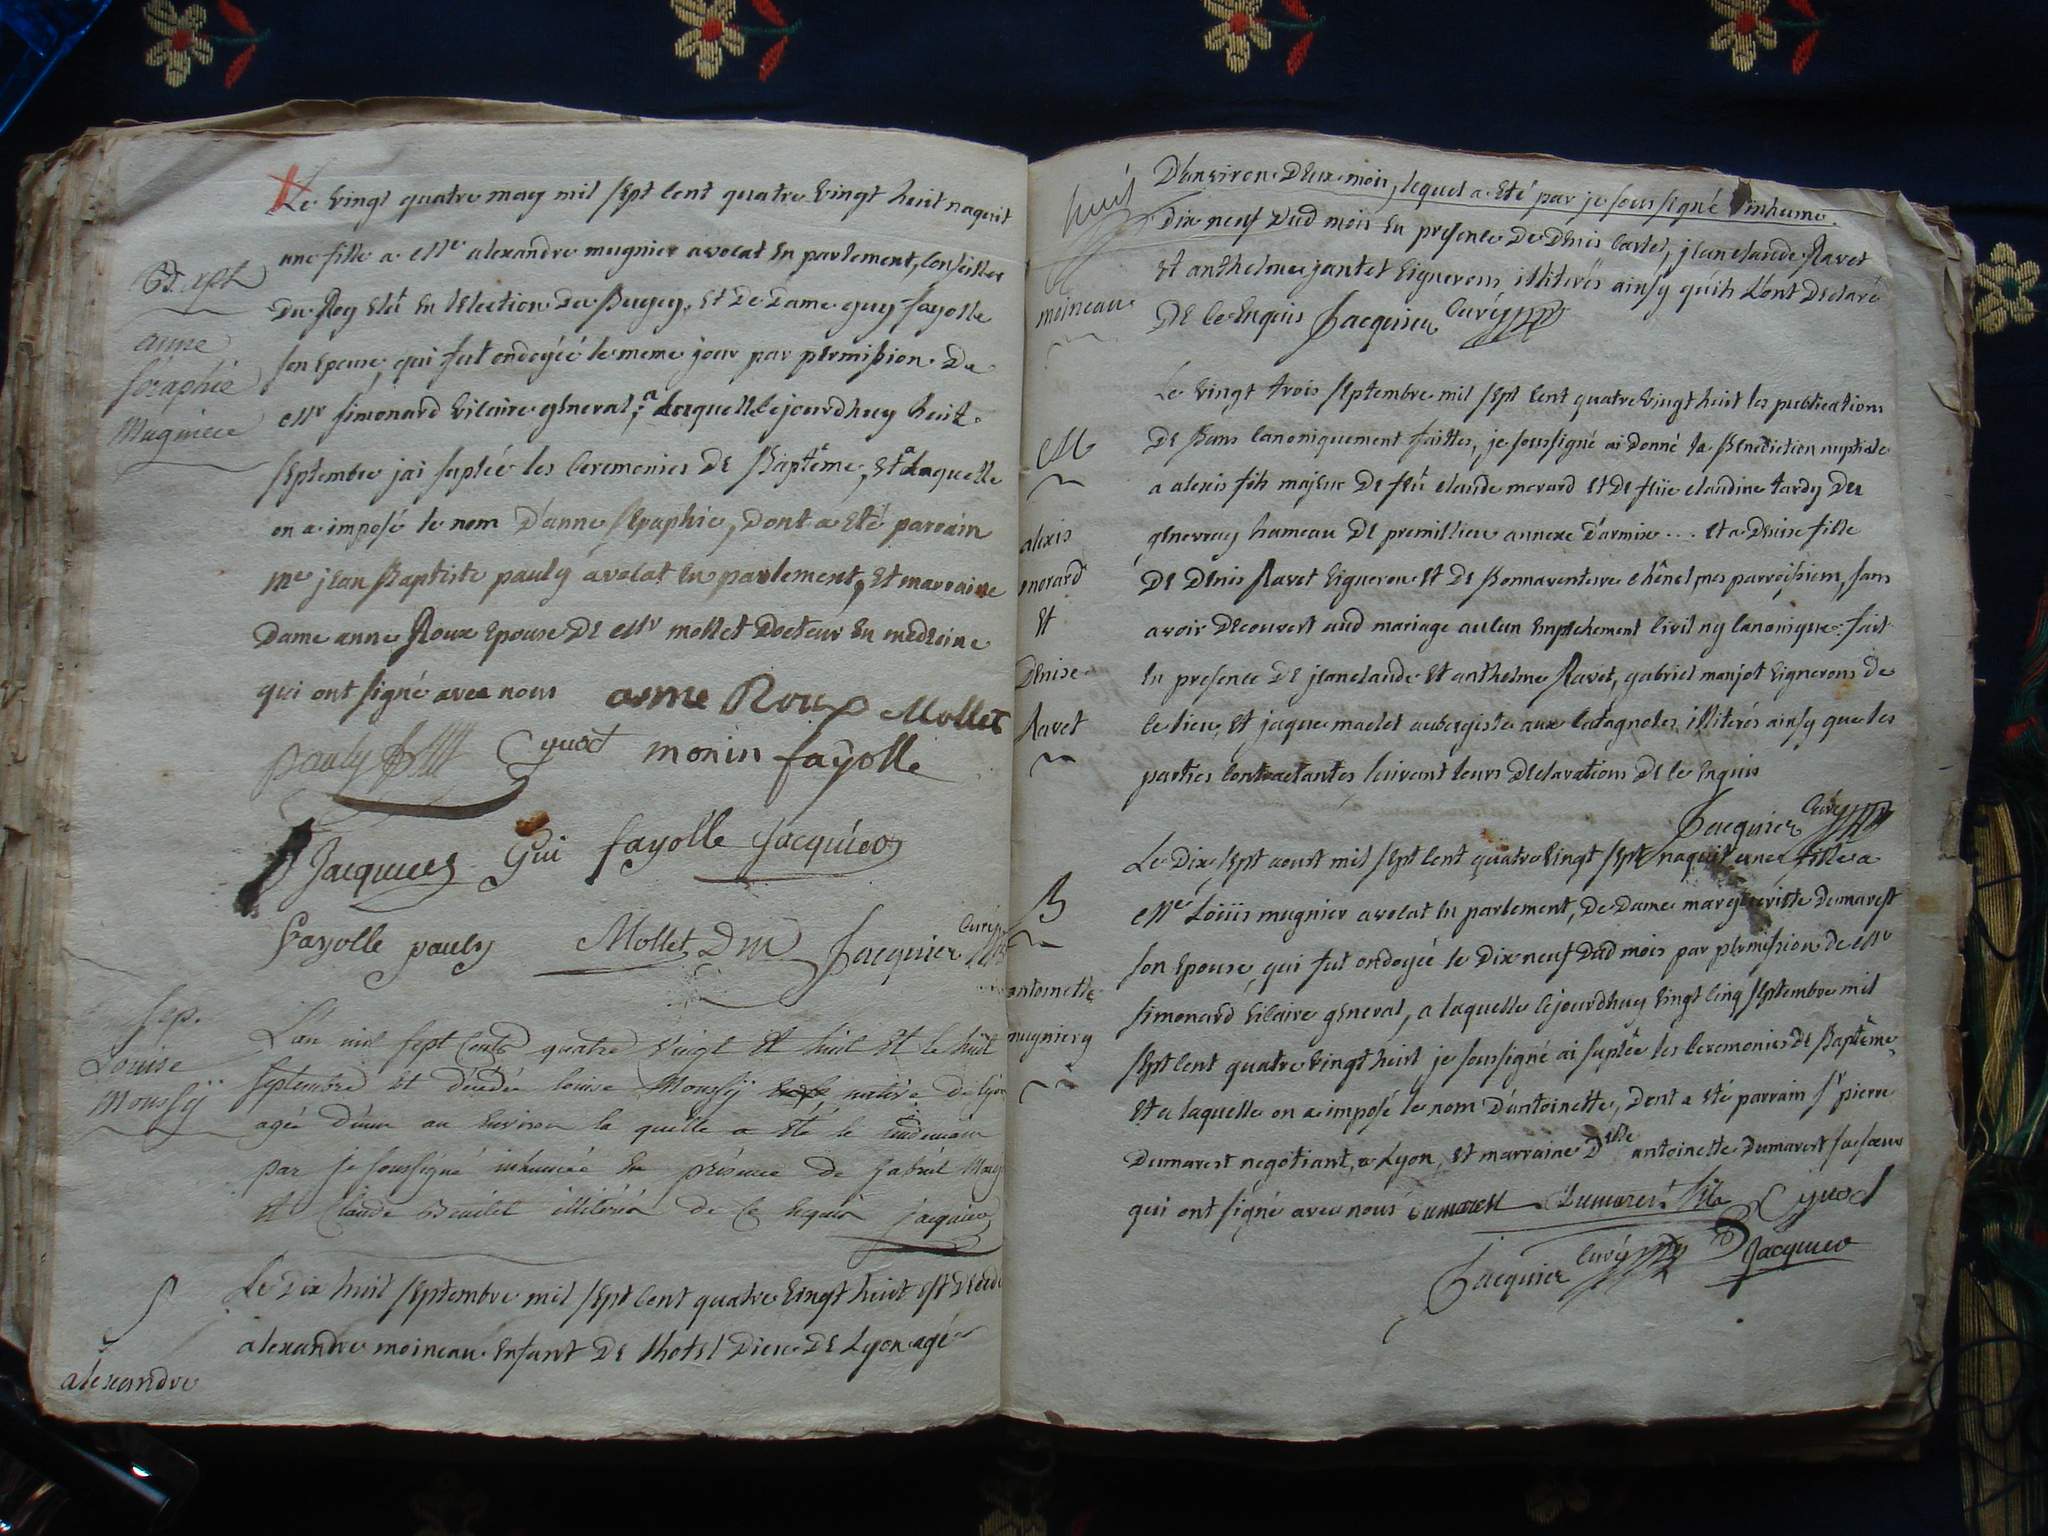 Le vingt quatre may mil sept cent quatre vingt huit naquit
une fille a mre alexandre mugnier avocat en parlement, conseiller
du Roy Elû en l'election du Bugey, et de Dame guy fayolle
son epouse, qui fut ondoyéé le meme jour par permission de
mr simonard vicaire general, a laquelle cejourd'huy huit
septembre jai suplée les ceremonies de Baptême, et a laquelle
on a imposé le nom d'anne seraphie, dont a eté parrain
me jean Baptiste pauly avocat en parlement, et marraine
Dame anne Roux epouse de mr mollet Docteur en medecine
qui ont signé avec nous anne Roux Mollet
pauly Cyvoct monin fayolle
Jacquier Gui fayolle Jacquier
Fayolle pauly Mollet D M Jacquier curé
B. sept
anne
séraphie
Mugniere
L'an mil sept cents quatre vingt et huit et le huit
septembre est décédée louise Moussÿ native de lyon
agée d'un an environ la quelle a eté le lendemain
par je soussigné inhumée en présence de gabriel
et Claude illiterés de ce enquis jacquier
sep.
Louise
Moussÿ
Le dix huit septembre mil sept cent quatre vingt huit est decedé
alexandre moineau enfant de l'hotel Dieu de Lyon agé
S
alexandre
D'environ deux mois, lequel a eté par je soussigné inhumé
Dix neuf dud mois en presence de Denis cartet, jean claude Ravet
et anthelme jantet vignerons illiterés ainsy qu'ils l'ont declaré
de ce enquis Jacquier curé
moineau
Le vingt trois septembre mil sept cent quatre vingt huit les publications
de Bans canoniquement faittes, je soussigné ai donné la Benediction nuptiale
a alexis fils majeur de feû claude morard et de füe claudine tardy du
genevray hameau de premillieu annexe d'armix ... et a Denise fille
de Denis Ravet vigneron et de Bonnaventure chênel mes parroissiens, sans
avoir decouvert aud mariage aucun empechement civil ny canonique: fait
en presence de jean claude et anthelme Ravet, gabriel monjot vignerons de
ce lieu, et jaque maclet aubergiste aux catagnoles, illiterés ainsy que les
parties contractantes suivant leurs declarations de ce enquis
Jacquier curé
M
alexis
morard
et
Denise
Ravet
Le dix sept aoust mil sept cent quatre vingt sept naquit une fille a
mre Loüis mugnier avocat en parlement, de dame margueritte dumarest
son epouse, qui fut ondoyée le dix neuf dud mois par permission de mr
simonard vicaire general, a laquelle cejourdhuy vingt cinq septembre mil
sept cent quatre vingt huit je soussigné ai suplée les ceremonies de Baptême,
et a laquelle on a imposé le nom d'antoinette, dont a eté parrain sr pierre
dumarest negotiant, a Lyon, et marraine Dlle antoinette dumarest sa sœur
qui ont signé avec nous dumarest Dumarest fils Cyvoct
Jacquier curé Jacquier
B
antoinette
mugniery